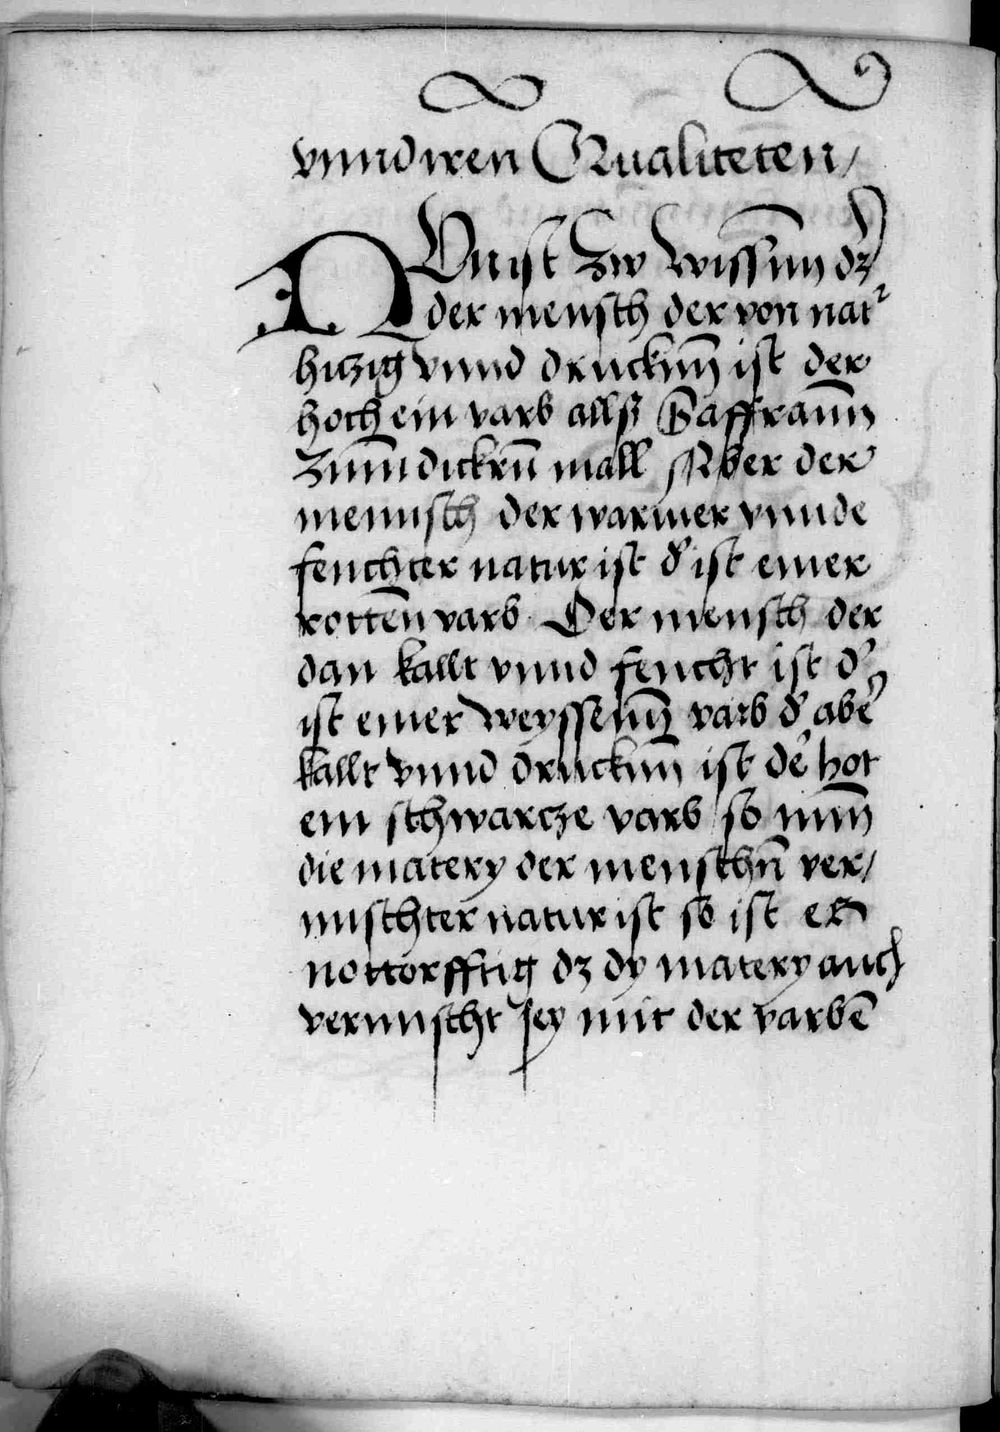 vnnd iren Qualiteten /
NVn ist zw wissn̄n dz
der mensch der von nat²
hitzig vnnd drucknn̄ ist der
hoch ein varb allß Saffrann̄
zūm dickrn̄ mall Aber der
mennsch der warmer vnnde
feuchter natur ist d' ist einer
rottēn varb Der mensch der
dan kallt vnnd feucht ist d'
ist einer weyssenn̄ varb d' abe'
kallt vnnd drucknn̄ ist de' hot
ein schwarcze varb so nun̄
die matery der menschn̄ ver/
mischter natur ist so ist es
nottorfftig dz dy matery auch
vermischt sey mit der varbē